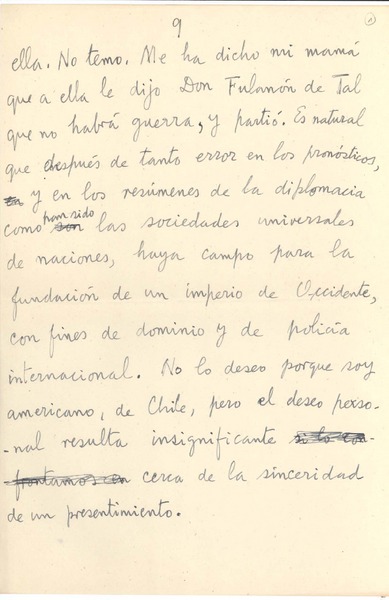 9
ella. No temo. Me ha dicho mi mamá
que a ella le dijo Don Fulanón de Tal
que no habrá guerra, y partió. Es natural
que después de tanto error en los pronósticos,
en y en los resúmenes de la diplomacia
como son han sido las sociedades universales
de naciones, haya campo para la
fundación de un imperio de Occidente,
con fines de dominio y de policía
internacional. No lo deseo porque soy
americano, de Chile, pero el deseo perso-
-nal resulta insignificante si lo con-
frontamos en cerca de la sinceridad
de un presentimiento.